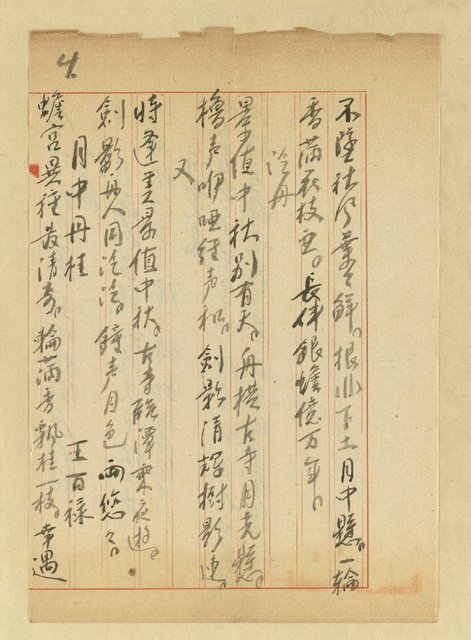 4.
不墜社門葉々鮮。根非下土月中懸。一輪
香滿萩枝丑。長伴銀蟾億万年。
泛舟
景值中秋別有天。舟橫古寺月光懸。
櫓声咿啞經声和。劍影清輝樹影連。
又
時逢美景值中秋。古寺臨潭乘夜遊。
劍影舟人同泛泛。鐘声月色両悠々。
月中丹桂
王百祿
蟾宮異種最清奇。輪滿香飄桂一枝。幸遇